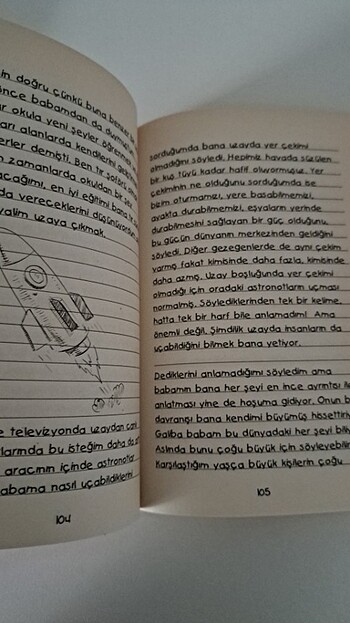 in doğru çünkü buna benzer
önce babamdan da duymuş
okula yeni şeyler öğrenmek
alanlarda kendilerini geliş
yerler demişti. Ben tır şoförü
zamanlarda okuldan bir şey
acağımı, en iyi eğitimi bana
da vereceklerini düşünüyordum
uzaya çıkmak.
televizyonda uzaydan
larında bu isteğim daha da
aracının içinde astronotlar
babama nasıl uçabildiklerini
104
sorduğumda bana uzayda yer çekimi
olmadığını söyledi. Hepimiz havada süzülen
bir kuş tüyü kadar hafif oluyormuşuz. Yer
çekiminin ne olduğunu sorduğumda ise
bizim oturmamızı, yere basabilmemizi,
ayakta durabilmemizi, eşyaların yerinde
durabilmesini sağlayan bir güç olduğunu,
bu gücün dünyanın merkezinden geldiğini
söyledi. Diğer gezegenlerde de aynı çekim
varmış fakat kimisinde daha fazla, kimisinde
daha azmış. Uzay boşluğunda yer çekimi
olmadığı için oradaki astronotların uçması
normalmiş. Söylediklerinden tek bir kelime,
hatta tek bir harf bile anlamadım! Ama
önemli değil. Şimdilik uzayda insanların da
uçabildiğini bilmek bana yetiyor.
Dediklerini anlamadığımı söyledim ama
babamın bana her şeyi en ince ayrıntısı ile
anlatması yine de hoşuma gidiyor. Onun b
davranışı bana kendimi büyümüş hissettiri
Galiba babam bu dünyadaki her şeyi bili
Aslında bunu çoğu büyük için söyleyebilir
Karşılaştığım yaşça büyük kişilerin çoğu
105